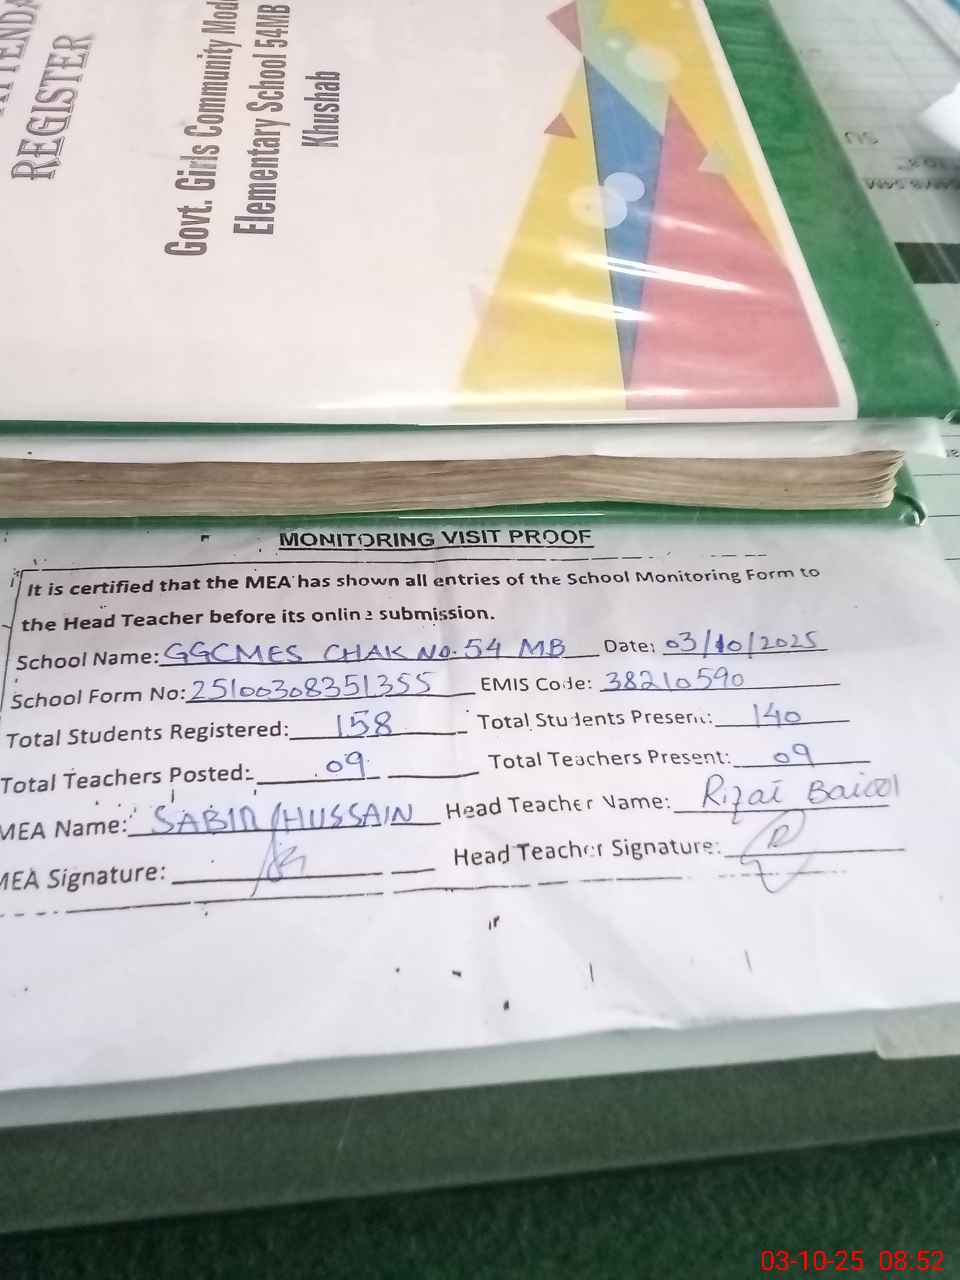 REGISTER
Govt. Girls Community
Elementary School 54MB
Khushab
MONITORING VISIT PROOF
It is certified that the MEA has shown all entries of the School Monitoring Form to
the Head Teacher before its online submission.
School Name: GGCMES CHAK No. 54 MB Date: 03/10/2025
School Form No: 25100308351355 EMIS Code: 38210590
Total Students Registered: 158 Total Students Present: 140
Total Teachers Posted: 09 Total Teachers Present: 09
MEA Name: SABIR HUSSAIN Head Teacher Name:
MEA Signature: Head Teacher Signature:
03-10-25 08:52